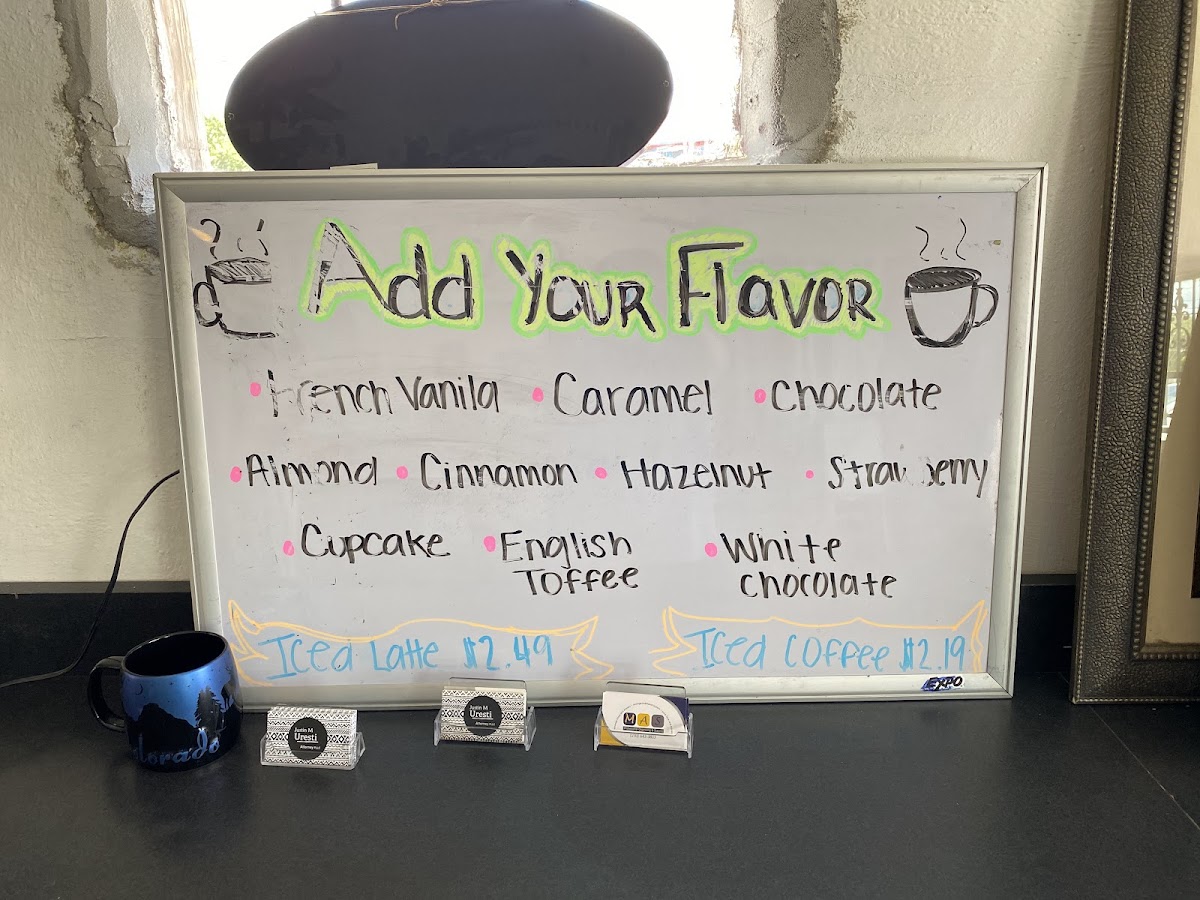 Add Your Flavor
• French Vanila • Caramel • Chocolate
• Almond • Cinnamon • Hazelnut • Strawberry
• Cupcake • English Toffee • White chocolate
Iced Latte $2.49 Iced Coffee $2.19
EXPO
olorado
Justin M
Uresti
Attorney
Justin M
Uresti
Attorney
MAS